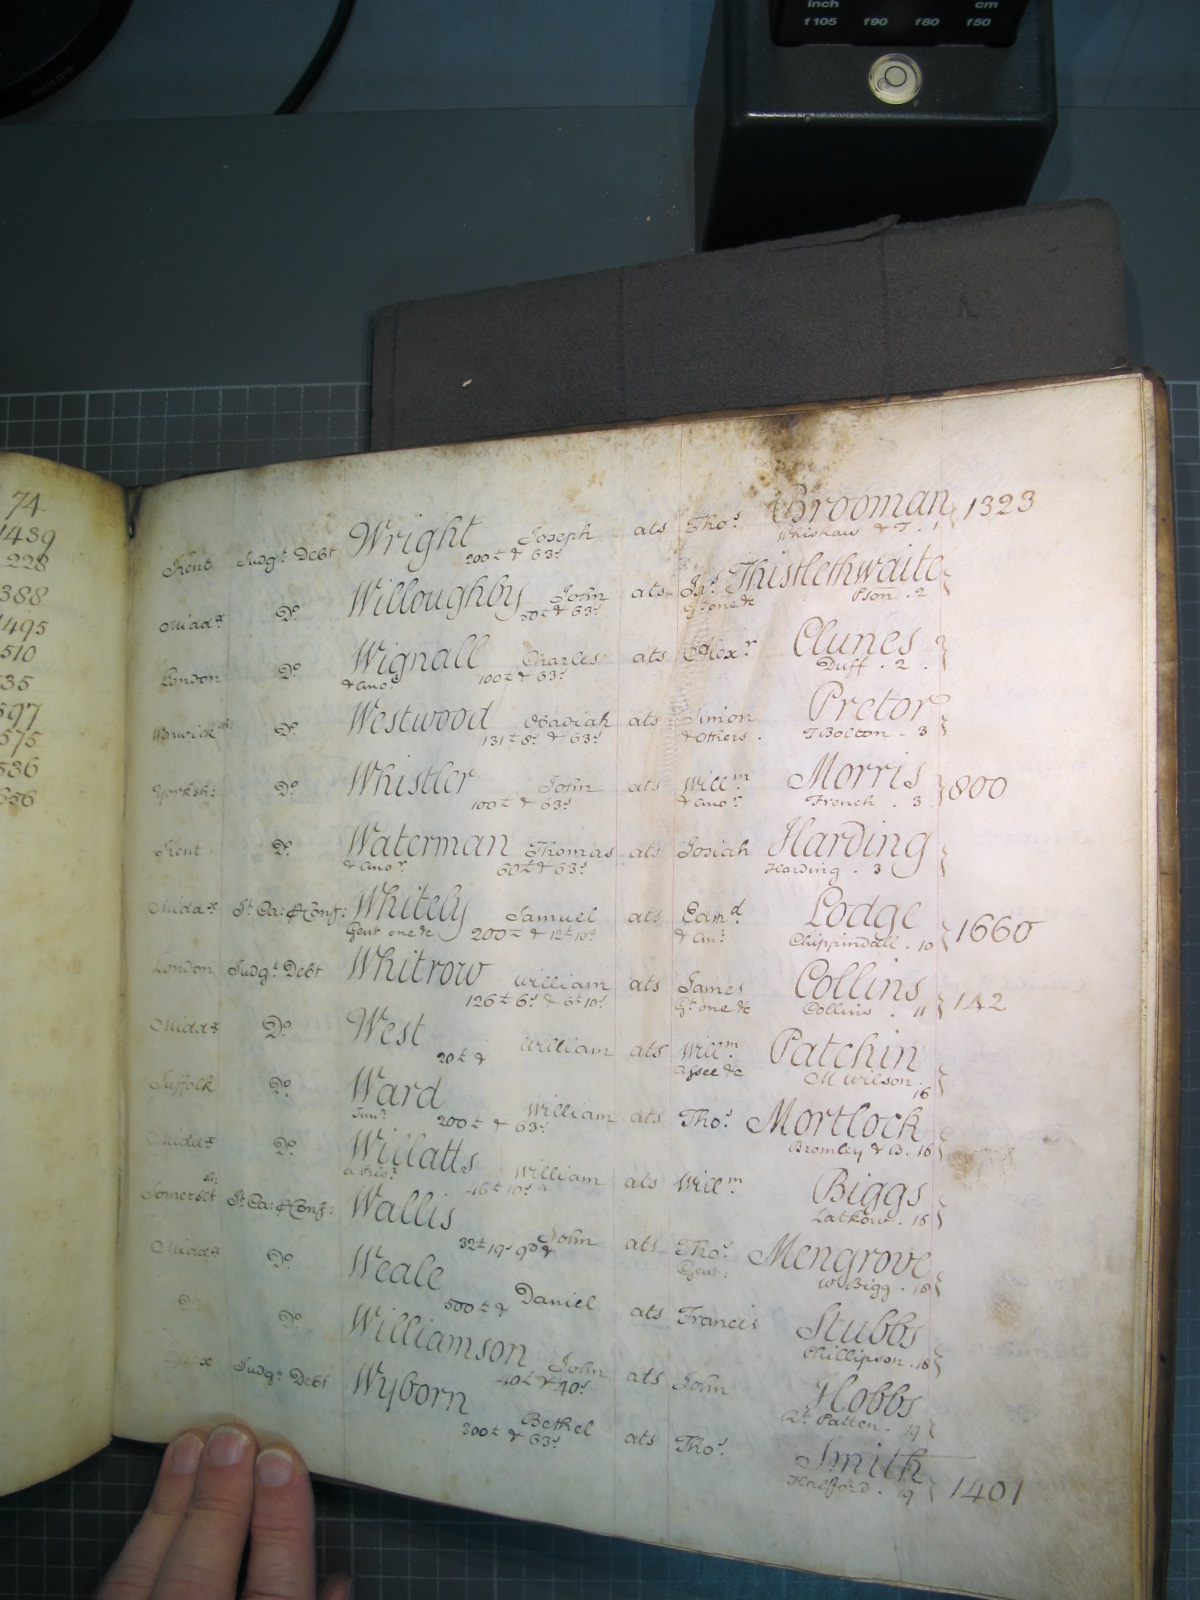 inch cm
f105 f90 f80 f50
PHILIPS
74
1439
228
388
1495
510
35
597
575
536
656
Kent Judgt. Debt Wright Joseph ats Thos. Brooman 1323
200£ & 63s Whishaw & T. 1
Middx Do. Willoughby John ats Jas. Thistlethwaite
50£ & 63s Gt one &c Pson . 2
London Do. Wignall Charles ats Alexr. Clunes
& anor. 100£ & 63s Duff . 2 .
Warwicksh: Do. Westwood Obadiah ats Simon Pretor
131£ 8s & 63s & others . T Bolton . 3
Yorksh: Do. Whistler John ats Willm. Morris 800
100£ & 63s & anor. French . 3
Kent Do. Waterman Thomas ats Josiah Harding
& anor. 60£ & 63s Harding . 3
Middx St. Ca: & Conf: Whitely Samuel ats Edmd. Lodge 1660
Gent one &c 200£ & 12£ 10s & anr. Chippindall . 10
London Judgt. Debt Whitrow William ats James Collins 142
126£ 6s & 6£ 10s Gt. one &c Collins . 11
Middx Do. West William ats Willm. Patchin
20£ & assee &c M Wilson . 16
Suffolk Do. Ward William ats Thos. Mortlock
Junr. 200£ & 63s Bromley & B. 16
Middx Do. Willatts William ats Willm. Biggs
a Prisr. 46£ 10s & Latkow . 16
Somersetsh: St. Ca: & Conf: Wallis John ats Thos. Mengrove
32£ 19s 9d & Gent: W. Bigg . 18
Middx Do. Weale Daniel ats Francis Stubbs
500£ & Phillipson . 18
Do. Williamson John ats John Hobbs
40£ & 40s Patten . 19
Judgt. Debt Wyborn Bethel ats Thos. Smith 1401
200£ & 63s Halford . 19